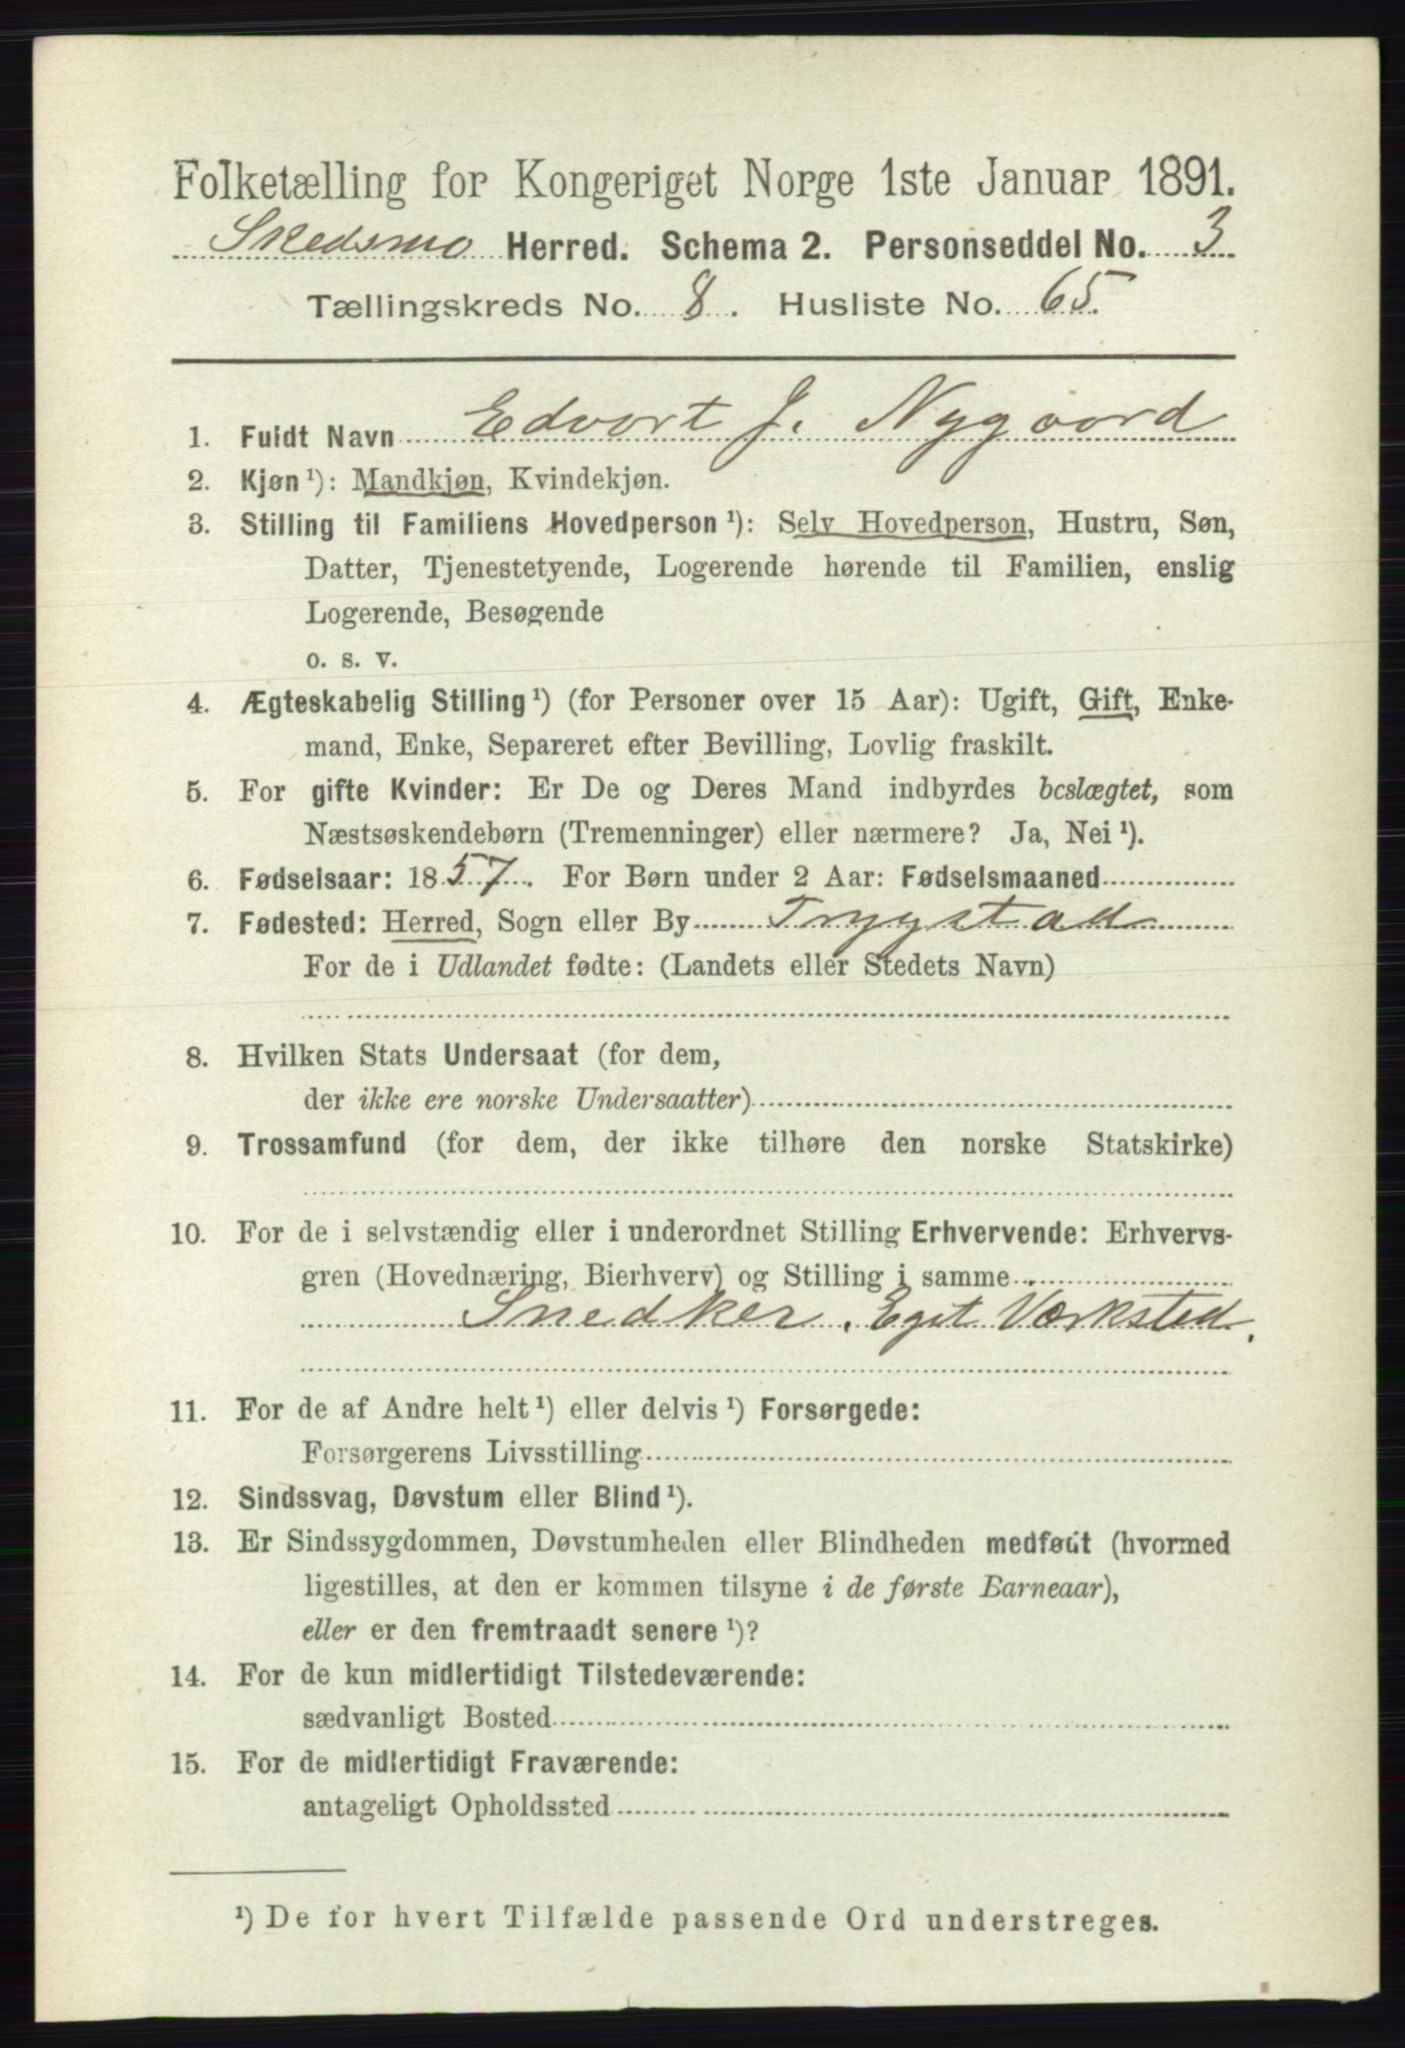 Folketælling for Kongeriget Norge 1ste Januar 1891.
Skedsmo Herred. Schema 2. Personseddel No. 3
Tællingskreds No. 8. Husliste No. 65.
1. Fuldt Navn Edvart J. Nygaard
2. Kjøn ¹): Mandkjøn, Kvindekjøn.
3. Stilling til Familiens Hovedperson ¹): Selv Hovedperson, Hustru, Søn,
Datter, Tjenestetyende, Logerende hørende til Familien, enslig
Logerende, Besøgende
o. s. v.
4. Ægteskabelig Stilling ¹) (for Personer over 15 Aar): Ugift, Gift, Enke-
mand, Enke, Separeret efter Bevilling, Lovlig fraskilt.
5. For gifte Kvinder: Er De og Deres Mand indbyrdes beslægtet, som
Næstsøskendebørn (Tremenninger) eller nærmere? Ja, Nei ¹).
6. Fødselsaar: 1857. For Børn under 2 Aar: Fødselsmaaned
7. Fødested: Herred, Sogn eller By Trygstad
For de i Udlandet fødte: (Landets eller Stedets Navn)
8. Hvilken Stats Undersaat (for dem,
der ikke ere norske Undersaatter)
9. Trossamfund (for dem, der ikke tilhøre den norske Statskirke)
10. For de i selvstændig eller i underordnet Stilling Erhvervende: Erhvervs-
gren (Hovednæring, Bierhverv) og Stilling i samme
Snedker. Eget Værksted.
11. For de af Andre helt ¹) eller delvis ¹) Forsørgede:
Forsørgerens Livsstilling
12. Sindssvag, Døvstum eller Blind ¹).
13. Er Sindssygdommen, Døvstumheden eller Blindheden medfødt (hvormed
ligestilles, at den er kommen tilsyne i de første Barneaar),
eller er den fremtraadt senere ¹)?
14. For de kun midlertidigt Tilstedeværende:
sædvanligt Bosted
15. For de midlertidigt Fraværende:
antageligt Opholdssted
¹) De for hvert Tilfælde passende Ord understreges.